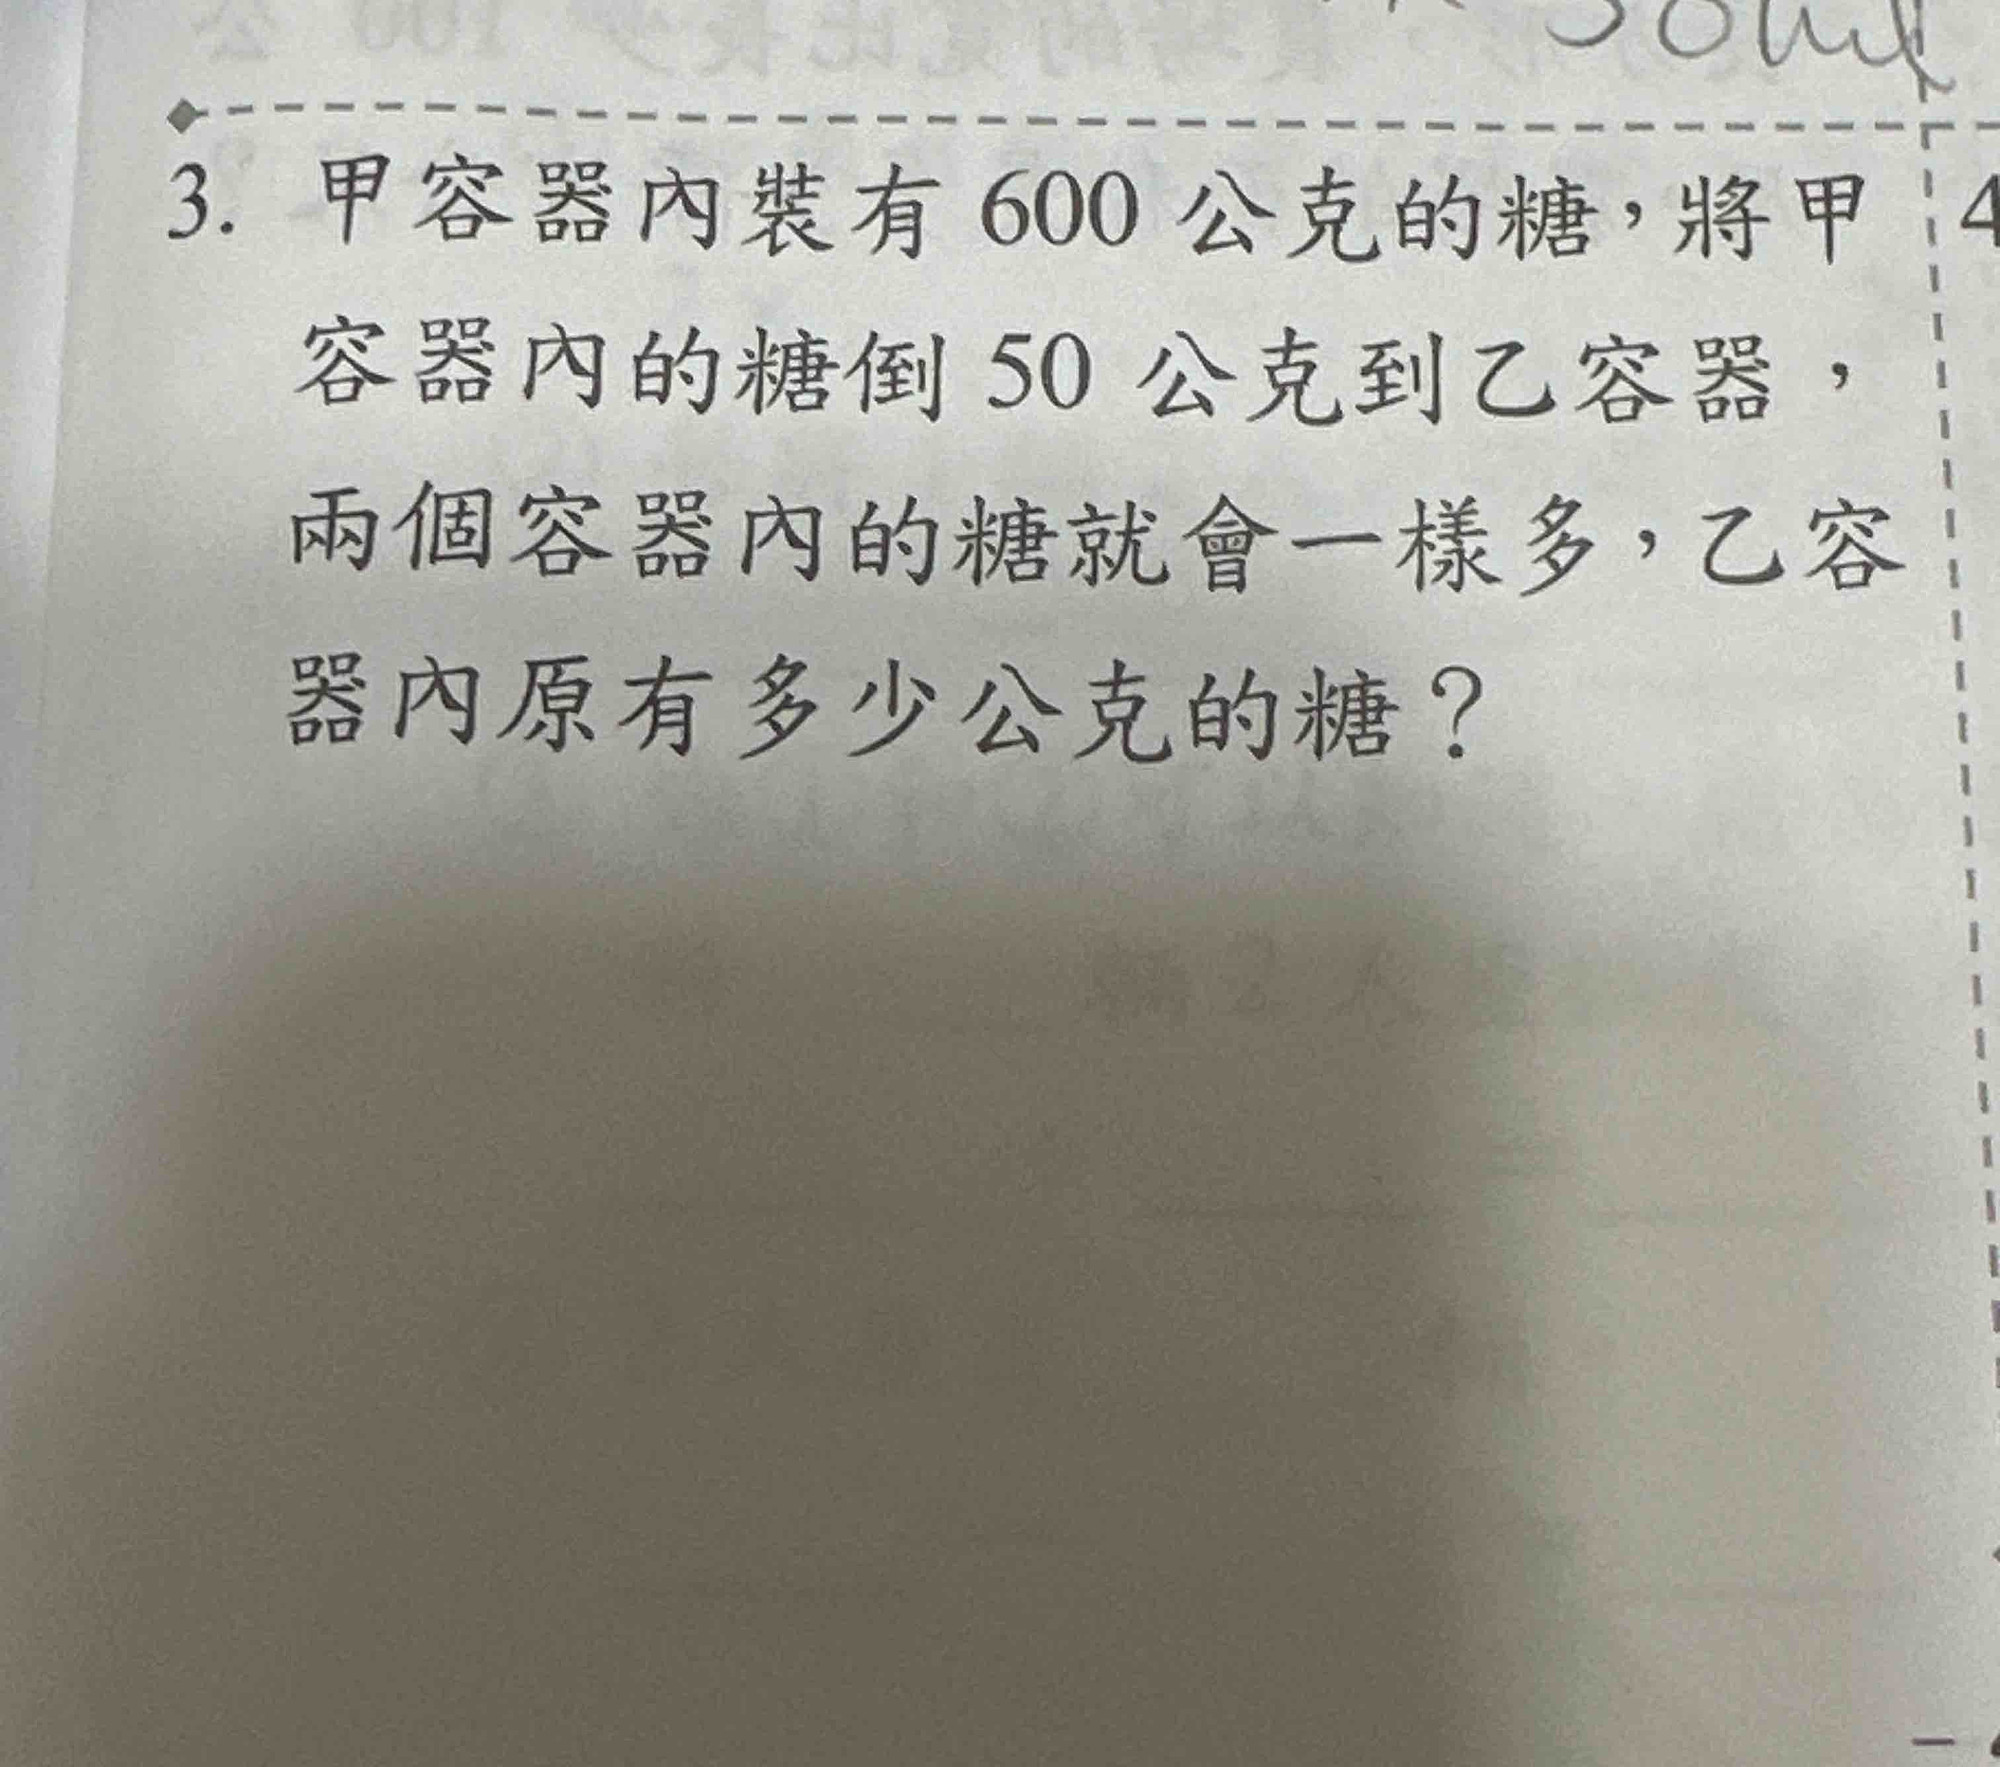 50ml
3. 甲容器內裝有 600 公克的糖，將甲
容器內的糖倒 50 公克到乙容器，
兩個容器內的糖就會一樣多，乙容
器內原有多少公克的糖？
4